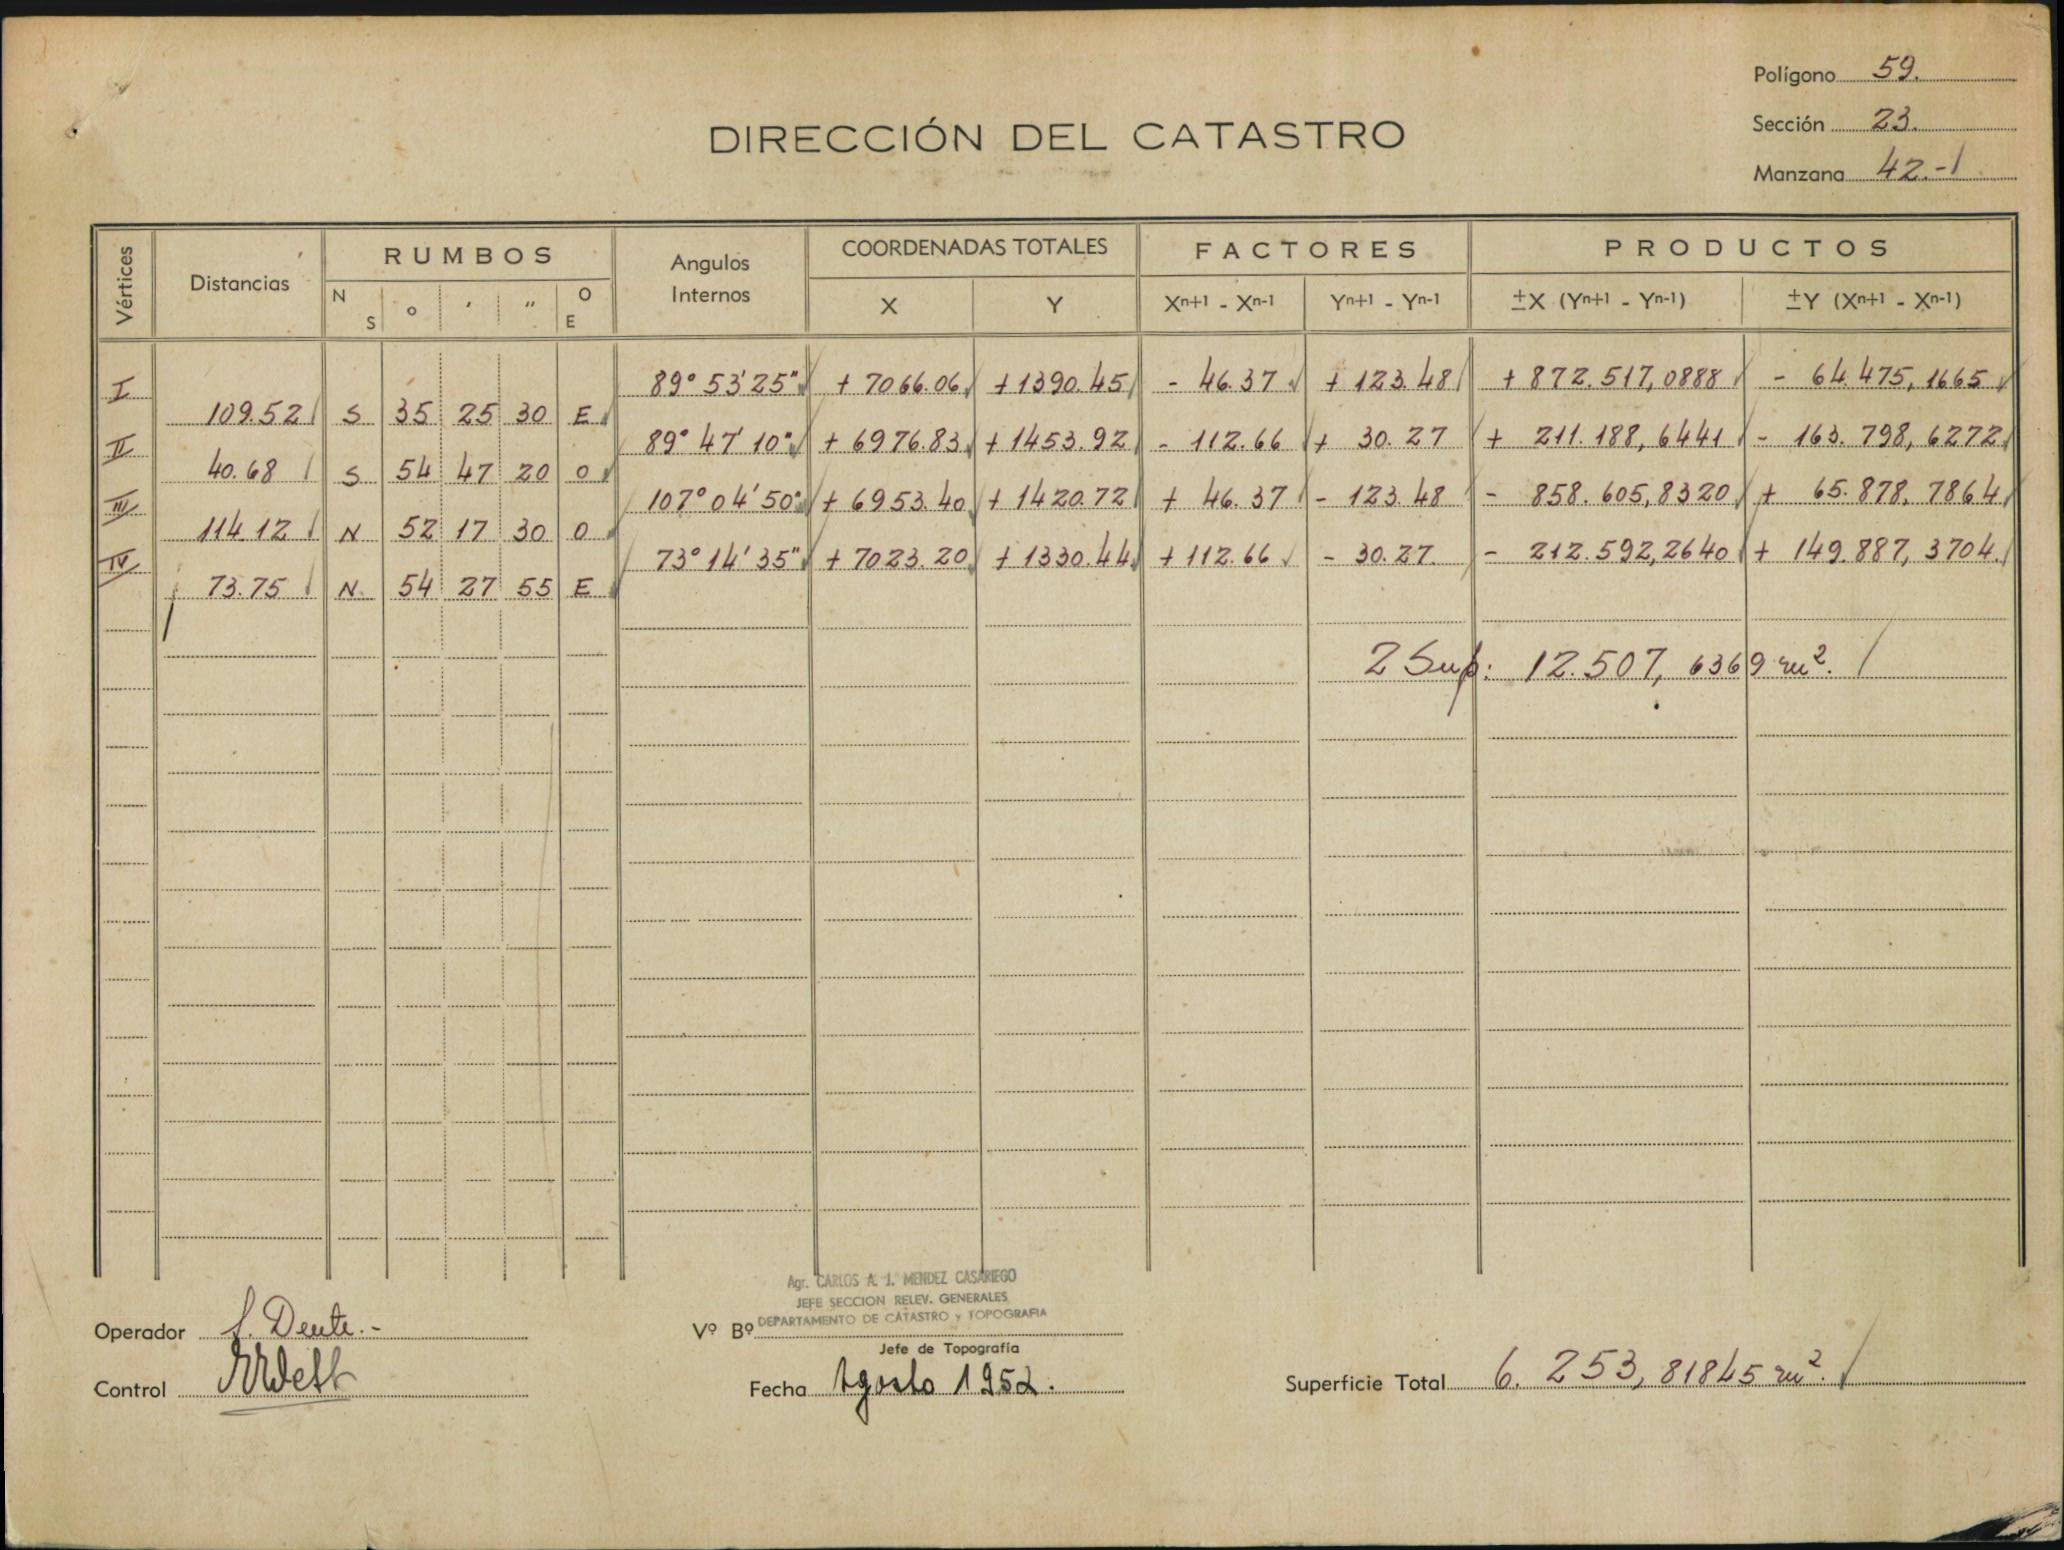 Polígono 59.
Sección 23.
Manzana 42.-1
DIRECCIÓN DEL CATASTRO
Vértices Distancias RUMBOS Angulos Internos COORDENADAS TOTALES FACTORES PRODUCTOS
N S ° ' " O E X Y Xn+1 - Xn-1 Yn+1 - Yn-1 ±X (Yn+1 - Yn-1) ±Y (Xn+1 - Xn-1)
I 89° 53' 25" + 7066.06 + 1390.45 - 46.37 + 123.48 + 872.517,0888 - 64.475,1665
109.52 S 35 25 30 E
II 89° 47' 10" + 6976.83 + 1453.92 - 112.66 + 30.27 + 211.188,6441 - 163.798,6272
40.68 S 54 47 20 O
III 107° 04' 50" + 6953.40 + 1420.72 + 46.37 - 123.48 - 858.605,8320 + 65.878,7864
114.12 N 52 17 30 O
IV 73° 14' 35" + 7023.20 + 1330.44 + 112.66 - 30.27 - 212.592,2640 + 149.887,3704
73.75 N 54 27 55 E
2 Sup: 12.507,6369 m².
Agr. CARLOS A. J. MENDEZ CASARIEGO
JEFE SECCION RELEV. GENERALES
DEPARTAMENTO DE CATASTRO y TOPOGRAFIA
Operador Deute.-
Vº Bº
Jefe de Topografía
Control
Fecha Agosto 1952.
Superficie Total 6.253,81845 m².